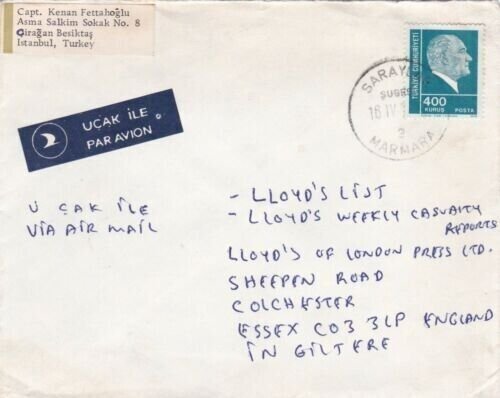 Capt. Kenan Fettahoğlu
Asma Salkim Sokak No. 8
Çirağan Beşiktaş
Istanbul, Turkey
TÜRKİYE CUMHURİYETİ
400
KURUŞ POSTA
ŞUBE
16 IV
2
MARMARA
UÇAK İLE
PAR AVION
U ÇAK İLE
VİA AİR MAİL
- LLOYD'S LİST
- LLOYD'S WEEKLY CASUALTY
REPORTS
LLOYD'S OF LONDON PRESS LTD.
SHEEPEN ROAD
COLCHESTER
ESSEX CO3 3LP ENGLAND
İN GİLTERE